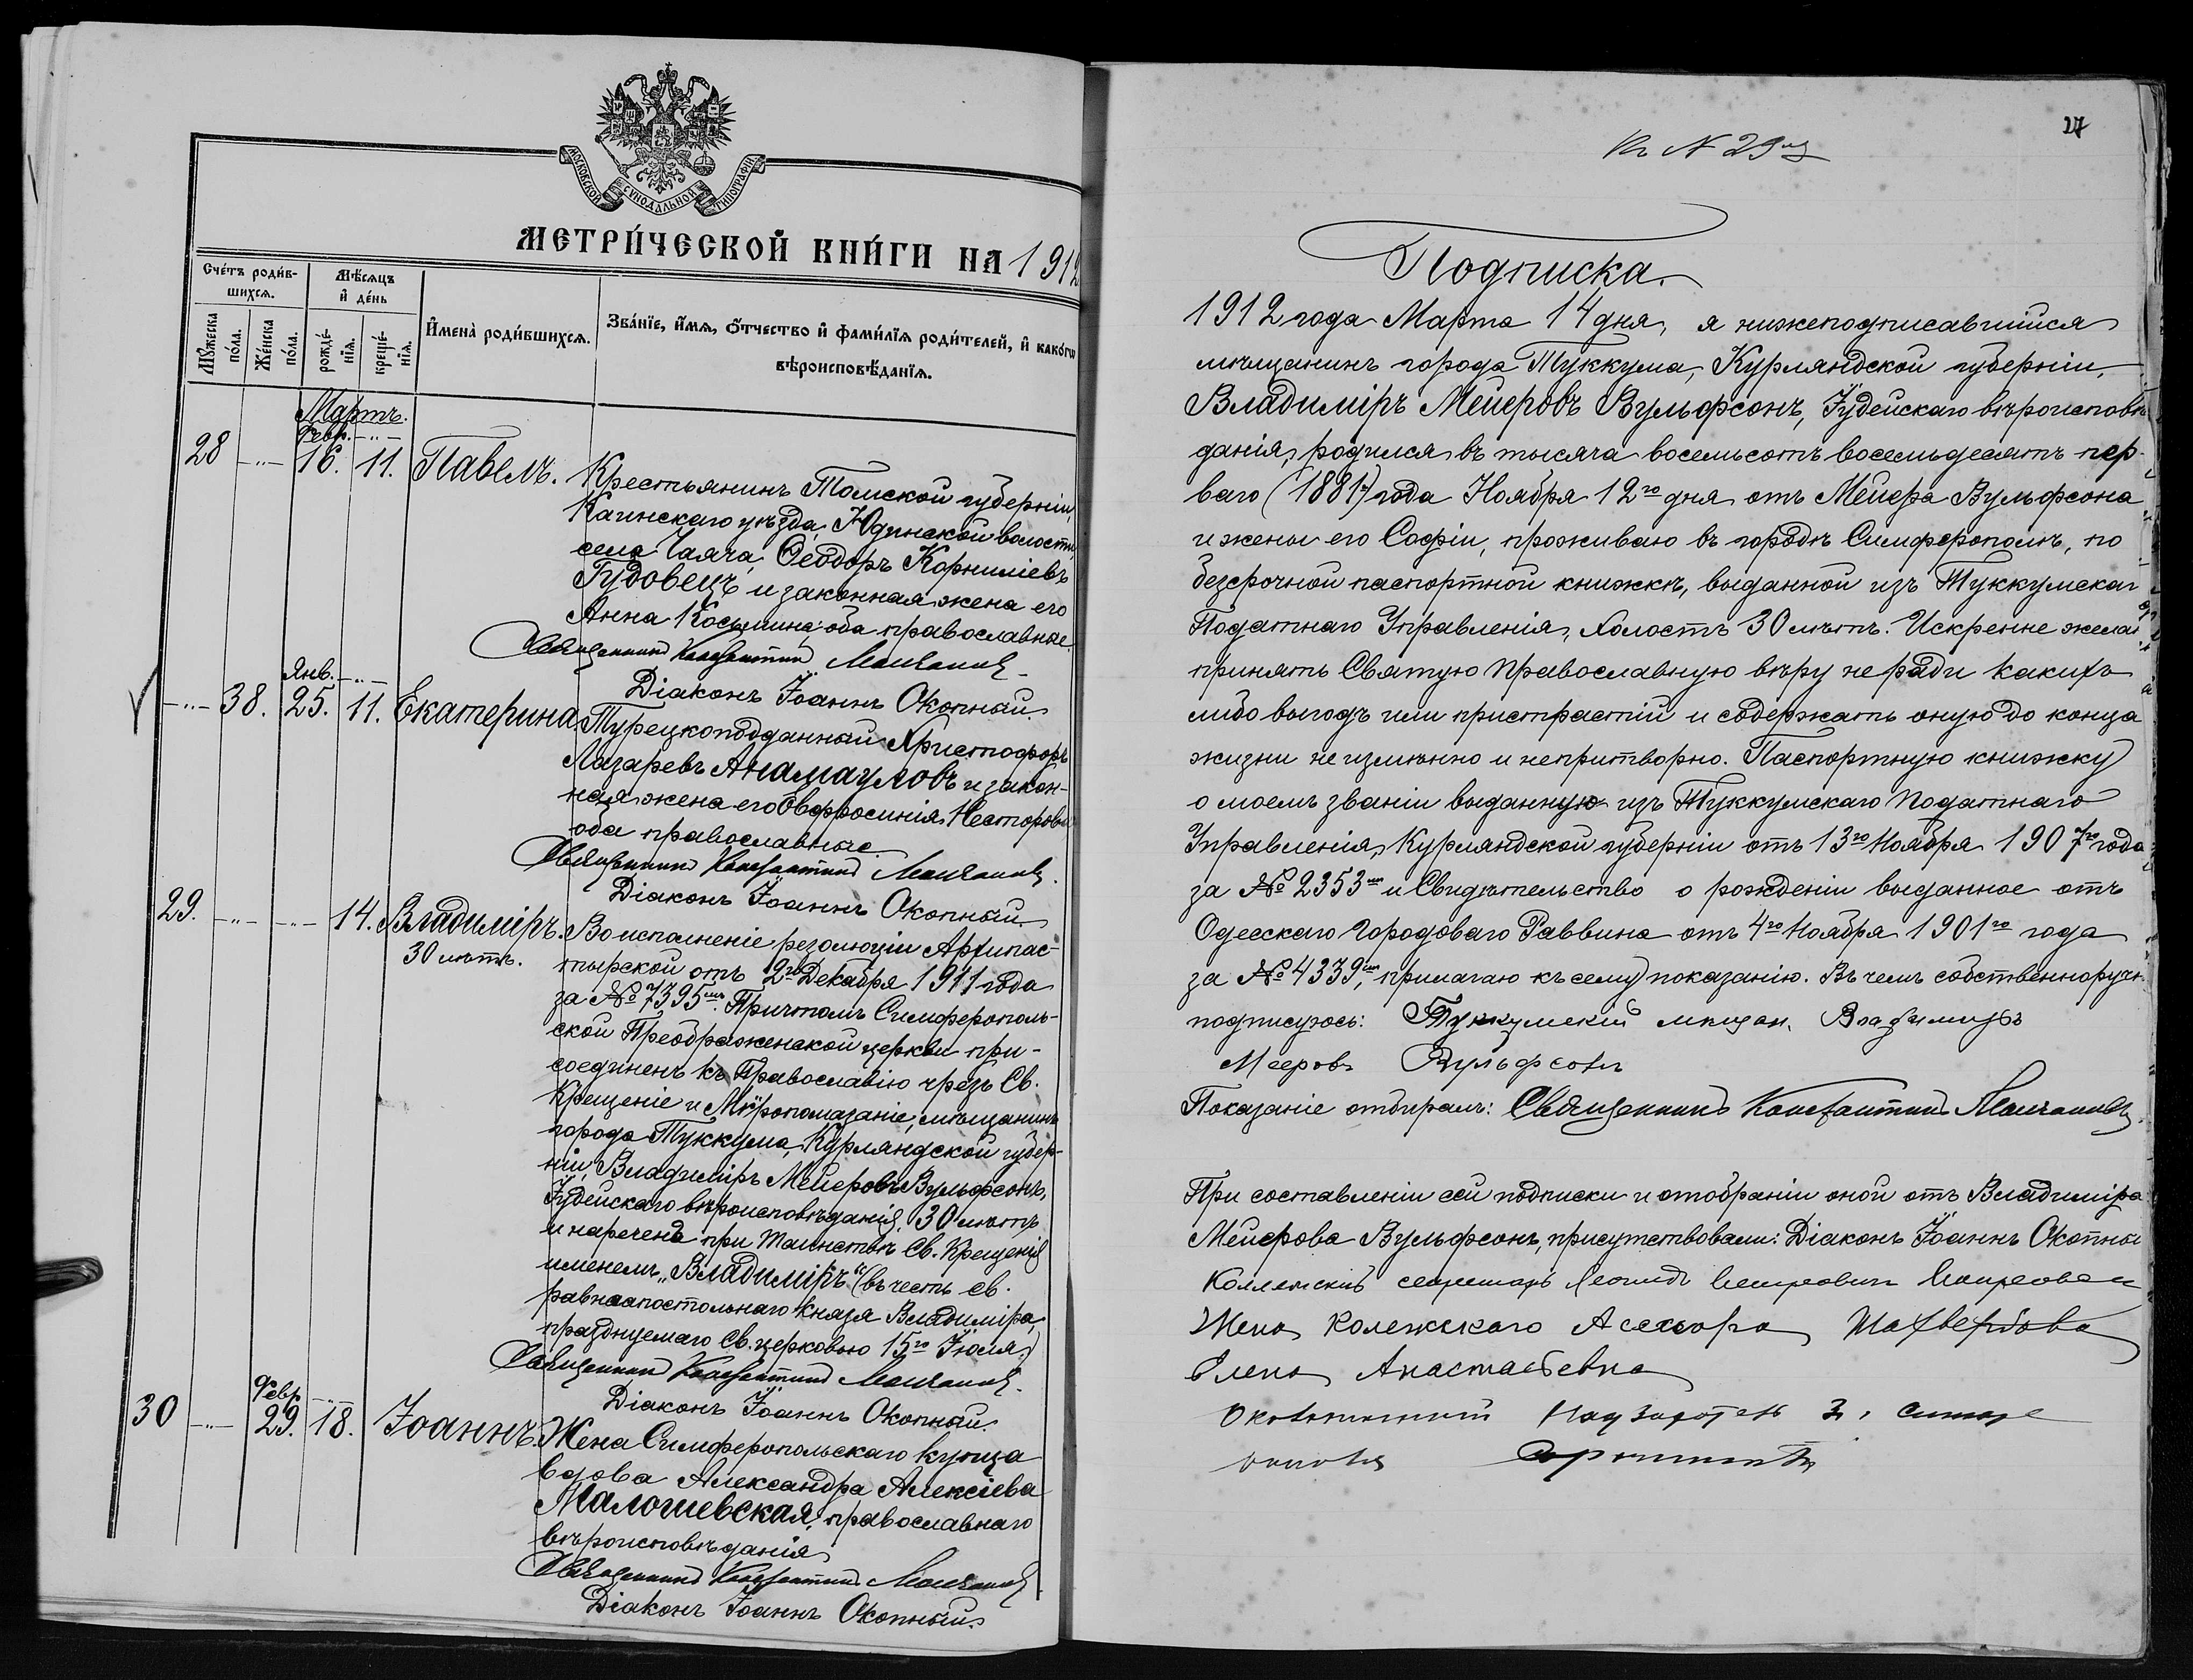 МОСКОВСКОЙ СѴНОДАЛЬНОЙ ТИПОГРАФІИ
МЕТРИ́ЧЕСКОЙ КНИ́ГИ НА 1912
Сче́тъ роди́в-
шихся.
Мѣ́сяцъ
и де́нь
Мꙋжеска
по́ла.
Же́нска
по́ла.
рожде́-
нїя.
креще́-
нїя.
Имена̀ роди́вшихся.
Зва́нїе, и́мя, о́тчество и фами́лїя роди́телей, и како́гѡ
вѣроисповѣ́данїя.
Мартъ.
Февр. -„-
28 -„- 16. 11. Павелъ. Крестьянинъ Томской губерніи,
Каинскаго уѣзда, Юдинской волости
села Чаяча, Ѳеодоръ Корниліевъ
Гудовецъ и законная жена его
Анна Космина: оба православные.
Священникъ Константинъ Молчановъ
Діаконъ Іоаннъ Окопный.
Янв. -„-
-„- 38. 25. 11. Екатерина. Турецкоподданный Христофоръ
Лазаревъ Анамауловъ и закон-
ная жена его Евфросинія Несторова
оба православные.
Священникъ Константинъ Молчановъ.
Діаконъ Іоаннъ Окопный.
29. -„- -„- 14. Владиміръ.
30 лѣтъ.
Во исполненіе резолюціи Архипас-
тырской отъ 2го Декабря 1911 года
за № 7395мъ. Причтомъ Симферополь-
ской Преображенской церкви при-
соединенъ къ Православію чрезъ Св.
Крещеніе и Мѵропомазаніе, мѣщанинъ
города Туккума, Курляндской губер-
ніи, Владиміръ Мейеровъ Вульфсонъ,
Іудейскаго вѣроисповѣданія, 30 лѣтъ
и нареченъ при таинствѣ Св. Крещенія
именемъ „Владиміръ“ (въ честь св.
равноапостольнаго Князя Владиміра,
празднуемаго Св. церковью 15го Іюля.)
Священникъ Константинъ Молчановъ.
Діаконъ Іоаннъ Окопный.
Февр -„-
30 -„- 29. 18. Іоаннъ. Жена Симферопольскаго купца
вдова Александра Алексіева
Малошевская, православнаго
вѣроисповѣданія
Священникъ Константинъ Молчановъ
Діаконъ Іоаннъ Окопный.
27
Къ № 29му
Подписка.
1912 года Марта 14 дня, я нижеподписавшійся
мѣщанинъ города Туккума, Курляндской губерніи,
Владиміръ Мейеровъ Вульфсонъ, Іудейскаго вѣроисповѣ-
данія, родился въ тысяча восемьсотъ восемьдесятъ пер-
ваго (1881) года Ноября 12го дня отъ Мейера Вульфсона
и жены его Софіи, проживаю въ городѣ Симферополѣ, по
безсрочной паспортной книжкѣ, выданной изъ Туккумскаго
Податнаго Управленія, холостъ 30 лѣтъ. Искренне желаю
принять Святую Православную вѣру не ради какихъ
либо выгодъ или пристрастій и содержать оную до конца
жизни неизмѣнно и непритворно. Паспортную книжку
о моемъ званіи выданную изъ Туккумскаго Податнаго
Управленія, Курляндской губерніи отъ 13го Ноября 1907го года
за № 2353мъ и Свидѣтельство о рожденіи выданное отъ
Одесскаго Городоваго Раввина отъ 4го Ноября 1901го года
за № 4339мъ, прилагаю къ сему показанію. Въ чемъ собственноручно
подписуюсь: Туккумскій мѣщан. Владиміръ
Мееровъ Вульфсонъ
Показаніе отбиралъ: Священникъ Константинъ Молчановъ.
При составленіи сей подписки и отобраніи оной отъ Владиміра
Мейерова Вульфсонъ, присутствовали: Діаконъ Іоаннъ Окопный
Коллежскій секретарь Леонидъ
Жена Колежскаго Асессора Шахвердова
Елена Анастасьевна
Околоточный Надзиратель 3 ч. Симфе